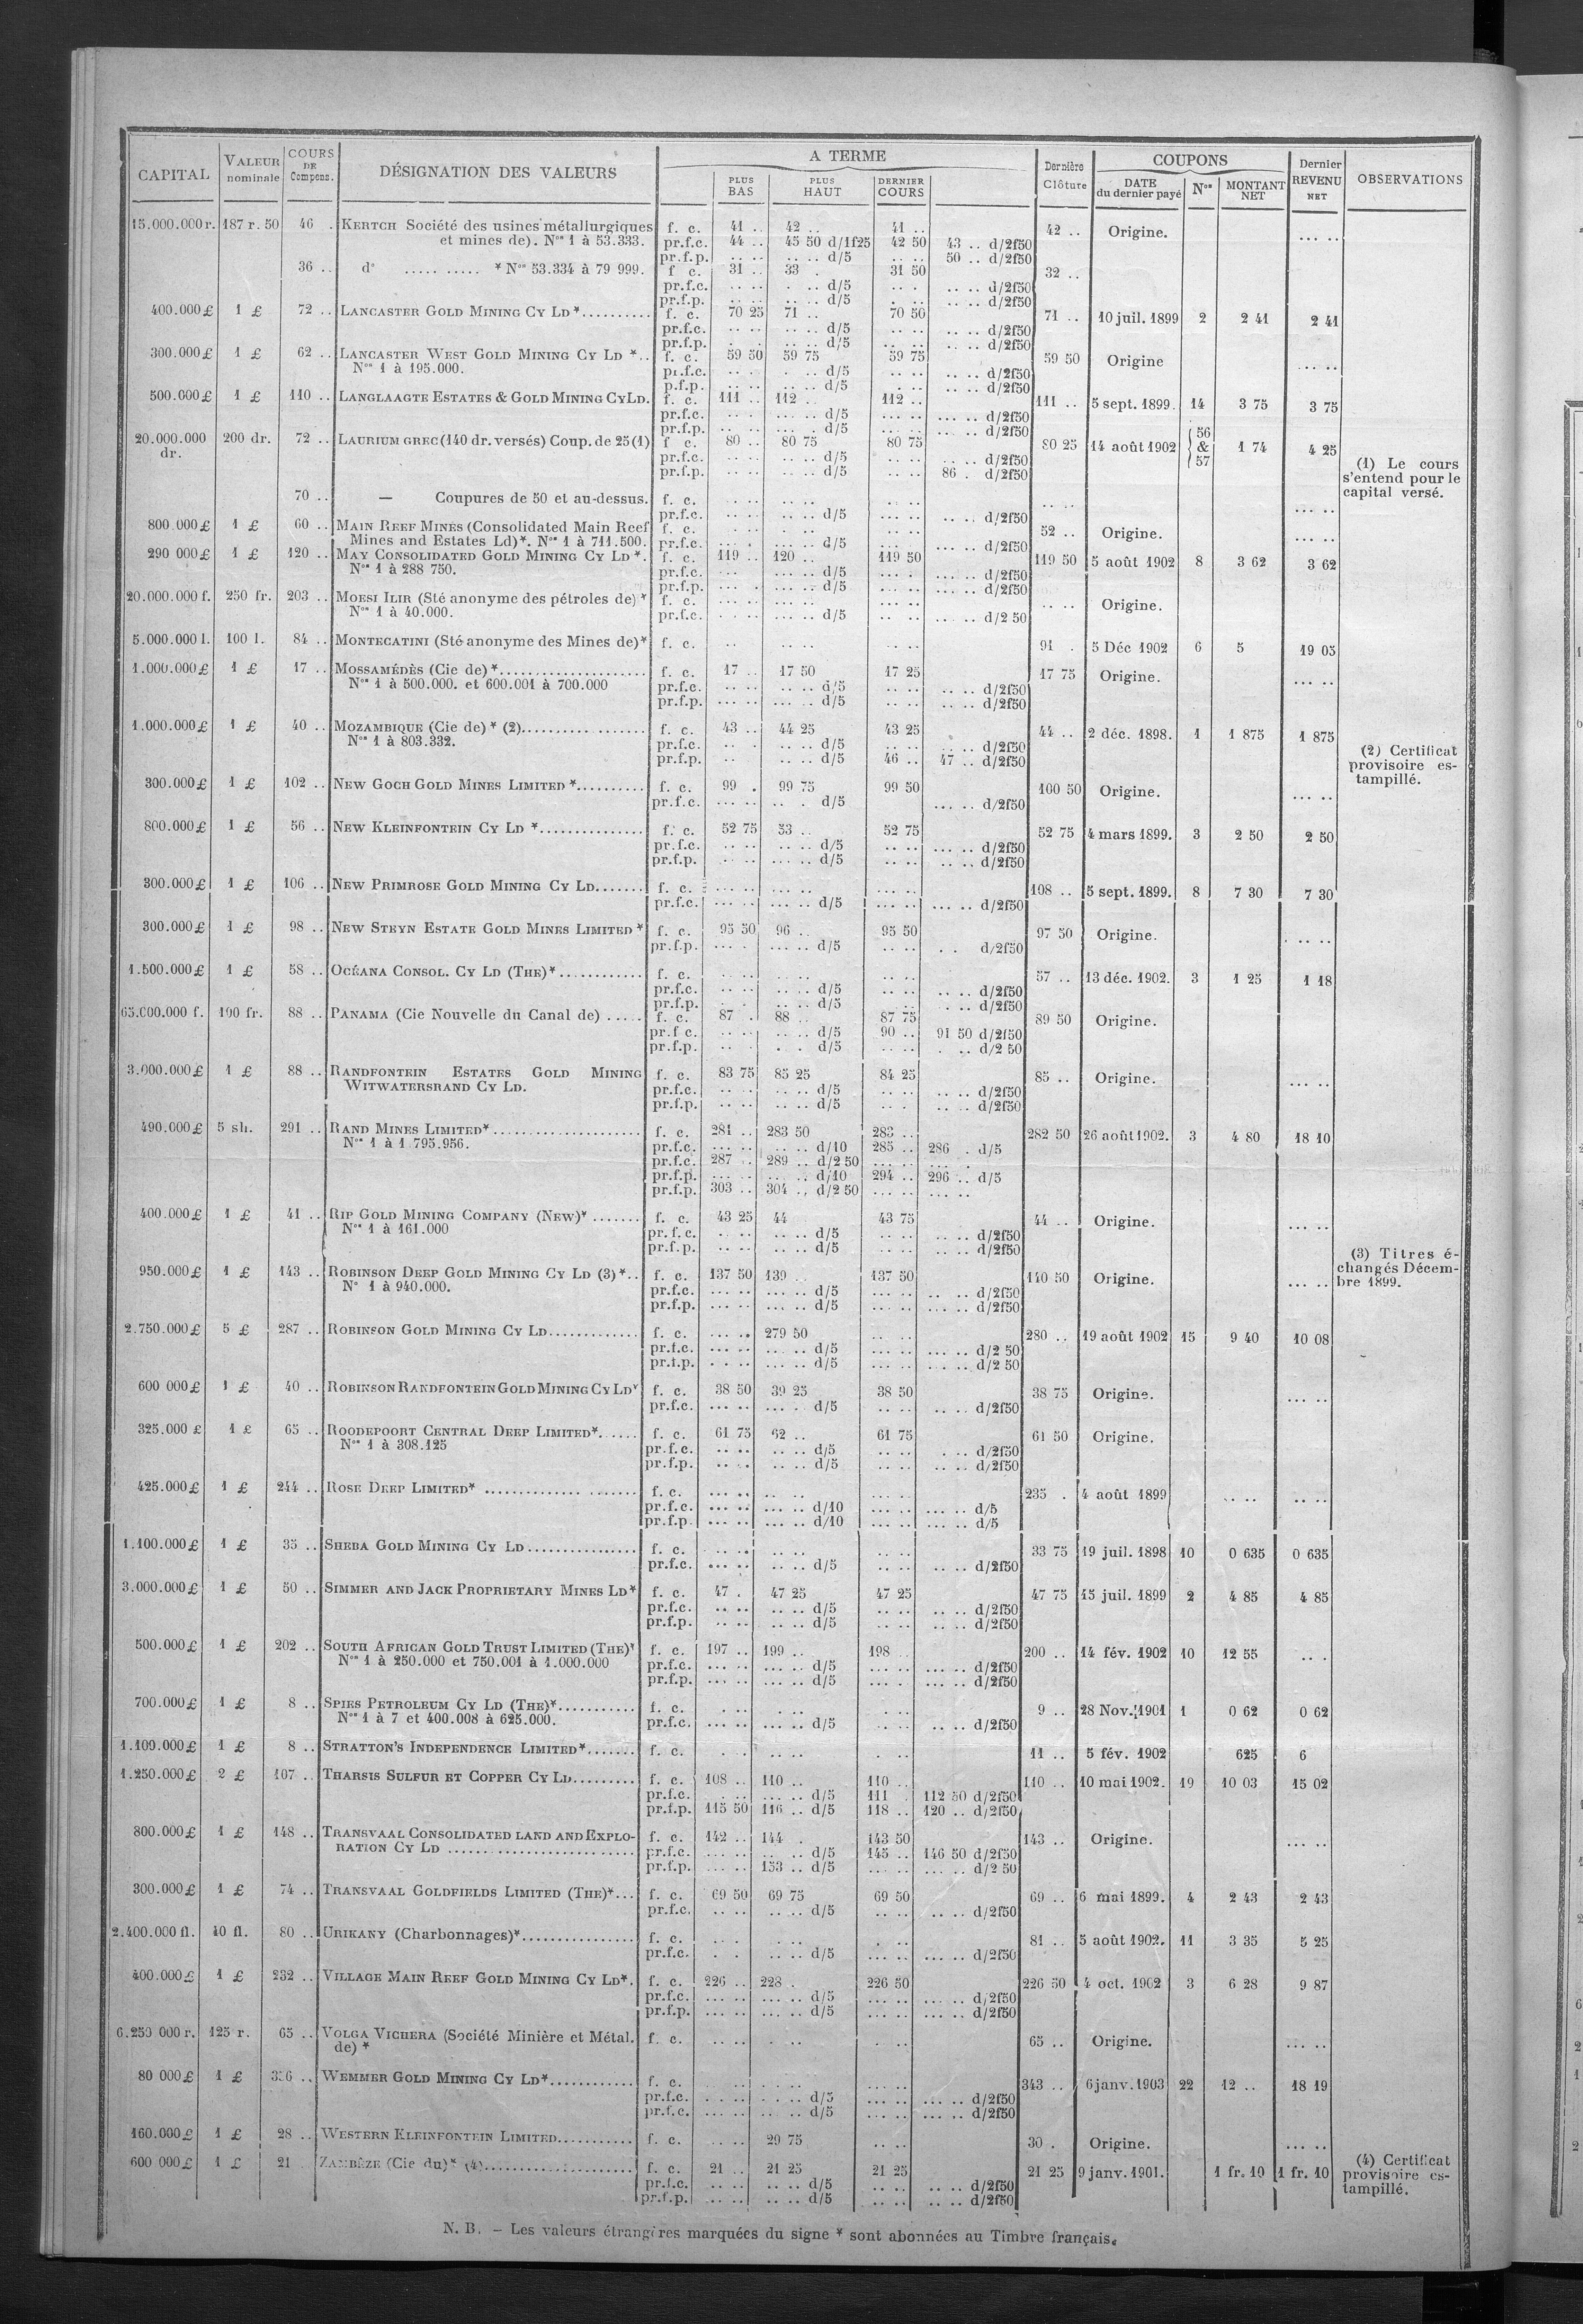 CAPITAL | VALEUR nominale | COURS DE Compens. | DÉSIGNATION DES VALEURS | A TERME | Dernière Clôture | COUPONS | Dernier REVENU NET | OBSERVATIONS
PLUS BAS | PLUS HAUT | DERNIER COURS | DATE du dernier payé | Nos | MONTANT NET
15.000.000 r. | 187 r. 50 | 46 . | KERTCH Société des usines métallurgiques | f. c. | 41 .. | 42 .. | 41 .. | 42 .. | Origine. | ... ..
et mines de). Nos 1 à 53.333. | pr.f.c. | 44 .. | 45 50 d/1f25 | 42 50 | 43 .. d/2f50
pr.f.p. | .. .. | .. .. d/5 | .. .. | 50 .. d/2f50
36 .. | do ..... ..... * Nos 53.334 à 79 999. | f c. | 31 .. | 33 . | 31 50 | 32 ..
pr.f.c. | .. .. | . .. d/5 | .. . | .. .. d/2f50
pr.f.p. | .. .. | .. .. d/5 | . .. | .. .. d/2f50
400.000 £ | 1 £ | 72 .. | LANCASTER GOLD MINING CY LD *.......... | f. c. | 70 25 | 71 .. | 70 50 | 71 .. | 10 juil. 1899 | 2 | 2 41 | 2 41
pr.f.c. | .. .. | .. .. d/5 | .. .. | .. .. d/2f50
pr.f.p. | . . | .. .. d/5 | .. .. | .. .. d/2f50
300.000 £ | 1 £ | 62 .. | LANCASTER WEST GOLD MINING CY LD *.. | f. c. | 59 50 | 59 75 | 59 75 | 59 50 | Origine | ... ..
Nos 1 à 195.000. | pr.f.c. | .. . | . .. d/5 | .. .. | .. .. d/2f50
p.f.p. | .. .. | .. .. d/5 | . .. | .. .. d/2f50
500.000 £ | 1 £ | 110 .. | LANGLAAGTE ESTATES & GOLD MINING CY LD. | f. c. | 111 .. | 112 .. | 112 .. | 111 .. | 5 sept. 1899. | 14 | 3 75 | 3 75
pr.f.c. | ... . | ... .. d/5 | ... .. | ... .. d/2f50
pr.f.p. | ... .. | ... . d/5 | ... .. | ... .. d/2f50
20.000.000 dr. | 200 dr. | 72 .. | LAURIUM GREC (140 dr. versés) Coup. de 25 (1) | f c. | 80 .. | 80 75 | 80 75 | 80 25 | 14 août 1902 | 56 & 57 | 1 74 | 4 25
pr.f.c. | .. .. | .. .. d/5 | .. .. | .. .. d/2f50
pr.f.p. | .. .. | .. .. d/5 | .. .. | 86 . d/2f50
(1) Le cours
s'entend pour le
capital versé.
70 .. | — Coupures de 50 et au-dessus. | f. c. | .. .. | .. .. | .. .. | .. .. | ... ..
pr.f.c. | .. .. | .. .. d/5 | ... .. | .. .. d/2f50
800 000 £ | 1 £ | 60 .. | MAIN REEF MINES (Consolidated Main Reef | f. c. | . .. | .. .. | ... .. | 52 .. | Origine. | ... ..
Mines and Estates Ld)*. Nos 1 à 711.500. | pr.f.c. | ... . | ... .. d/5 | ... .. | ... .. d/2f50
290 000 £ | 1 £ | 120 .. | MAY CONSOLIDATED GOLD MINING CY LD *. | f. c. | 119 .. | 120 .. | 119 50 | 119 50 | 5 août 1902 | 8 | 3 62 | 3 62
Nos 1 à 288 750. | pr.f.c. | ... | ... .. d/5 | ... . | ... .. d/2f50
pr.f.p. | ... . | ... .. d/5 | ... .. | ... .. d/2f50
20.000.000 f. | 250 fr. | 203 .. | MOESI ILIR (Sté anonyme des pétroles de) * | f. c. | ... .. | ... .. | ... .. | .. .. | Origine.
Nos 1 à 40.000. | pr.f.c. | ... .. | ... .. d/5 | .. .. | ... .. d/2 50
5.000.000 l. | 100 l. | 84 .. | MONTECATINI (Sté anonyme des Mines de)* | f. c. | .. | .. .. | .. .. | 91 . | 5 Déc 1902 | 6 | 5 | 19 05
1.000.000 £ | 1 £ | 17 .. | MOSSAMÉDÈS (Cie de) *..................... | f. c. | 17 .. | 17 50 | 17 25 | 17 75 | Origine. | ... ..
Nos 1 à 500.000. et 600.001 à 700.000 | pr.f.c. | .. .. | .. .. d/5 | .. .. | .. .. d/2f50
pr.f.p. | ... .. | ... .. d/5 | .. .. | .. .. d/2f50
1.000.000 £ | 1 £ | 40 .. | MOZAMBIQUE (Cie de) * (2).................. | f. c. | 43 .. | 44 25 | 43 25 | 44 .. | 2 déc. 1898. | 1 | 1 875 | 1 875
Nos 1 à 803.332. | pr.f.c. | .. . | .. .. d/5 | .. .. | .. .. d/2f50
pr.f.p. | .. | .. .. d/5 | 46 .. | 47 .. d/2f50
(2) Certificat
provisoire es-
tampillé.
300.000 £ | 1 £ | 102 .. | NEW GOCH GOLD MINES LIMITED *.......... | f. c. | 99 . | 99 75 | 99 50 | 100 50 | Origine. | ... ..
pr.f.c. | ... .. | .. . d/5 | ... .. d/2f50
800.000 £ | 1 £ | 56 .. | NEW KLEINFONTEIN CY LD *............... | f. c. | 52 75 | 53 .. | 52 75 | 52 75 | 4 mars 1899. | 3 | 2 50 | 2 50
pr.f.c. | .. .. | ... .. d/5 | .. .. | ... .. d/2f50
pr.f.p. | .. .. | ... .. d/5 | .. .. | .. .. d/2f50
300.000 £ | 1 £ | 106 .. | NEW PRIMROSE GOLD MINING CY LD....... | f. c. | ... .. | ... .. | ... .. | 108 .. | 5 sept. 1899. | 8 | 7 30 | 7 30
pr.f.c. | ... .. | ... .. d/5 | ... .. | ... .. d/2f50
300.000 £ | 1 £ | 98 .. | NEW STEYN ESTATE GOLD MINES LIMITED * | f. c. | 95 50 | 96 .. | 95 50 | 97 50 | Origine. | ... ..
pr.f.p. | ... . | ... .. d/5 | .. .. | . . d/2f50
1.500.000 £ | 1 £ | 58 .. | OCÉANA CONSOL. CY LD (THE)*............ | f. c. | .. .. | .. .. | .. .. | 57 .. | 13 déc. 1902. | 3 | 1 25 | 1 18
pr.f.c. | .. .. | .. .. d/5 | .. .. | .. .. d/2f50
pr.f.p. | . . | .. .. d/5 | .. | . .. d/2f50
65.000.000 f. | 100 fr. | 88 .. | PANAMA (Cie Nouvelle du Canal de) ..... | f. c. | 87 . | 88 .. | 87 75 | 89 50 | Origine.
pr.f c. | .. .. | .. .. d/5 | 90 .. | 91 50 d/2f50
pr.f.p. | .. . | . . d/5 | .. .. | . .. d/2 50
3.000.000 £ | 1 £ | 88 .. | RANDFONTEIN ESTATES GOLD MINING | f. c. | 83 75 | 85 25 | 84 25 | 85 .. | Origine. | ... ..
WITWATERSRAND CY LD. | pr.f.c. | .. .. | .. .. d/5 | .. .. | .. .. d/2f50
pr.f.p. | .. .. | .. .. d/5 | .. . | .. .. d/2f50
490.000 £ | 5 sh. | 291 .. | RAND MINES LIMITED*..................... | f. c. | 281 .. | 283 50 | 283 .. | 282 50 | 26 août 1902. | 3 | 4 80 | 18 10
Nos 1 à 1 795.956. | pr.f.c. | ... .. | .. .. d/10 | 285 .. | 286 . d/5
pr.f.c. | 287 .. | 289 .. d/2 50 | ... .. | ... .
pr.f.p. | ... .. | ... .. d/10 | 294 .. | 296 .. d/5
pr.f.p. | 303 .. | 304 .. d/2 50 | ... .. | ... ..
400.000 £ | 1 £ | 41 .. | RIP GOLD MINING COMPANY (NEW)* ....... | f. c. | 43 25 | 44 | 43 75 | 44 .. | Origine. | ... ..
Nos 1 à 161.000 | pr. f. c. | .. .. | .. .. d/5 | .. .. | .. .. d/2f50
pr.f.p. | .. .. | .. .. d/5 | .. .. | .. .. d/2f50
950.000 £ | 1 £ | 143 .. | ROBINSON DEEP GOLD MINING CY LD (3) *.. | f. c. | 137 50 | 139 . | 137 50 | 140 50 | Origine. | ... ..
No 1 à 940.000. | pr.f.c. | ... .. | ... .. d/5 | ... .. | .. .. d/2f50
pr.f.p. | ... .. | ... .. d/5 | ... .. | ... .. d/2f50
(3) Titres é-
changés Décem-
bre 1899.
2.750.000 £ | 5 £ | 287 .. | ROBINSON GOLD MINING CY LD............. | f. c. | ... .. | 279 50 | .. .. | 280 .. | 19 août 1902 | 15 | 9 40 | 10 08
pr.f.c. | ... .. | ... .. d/5 | ... .. | ... .. d/2 50
pr.f.p. | . . .. | ... .. d/5 | ... .. | ... .. d/2 50
600 000 £ | 1 £ | 40 .. | ROBINSON RANDFONTEIN GOLD MINING CY LD* | f. c. | 38 50 | 39 25 | 38 50 | 38 75 | Origine. | ... ..
pr.f.c. | ... .. | ... . d/5 | .. .. | .. .. d/2f50
325.000 £ | 1 £ | 65 .. | ROODEPOORT CENTRAL DEEP LIMITED*...... | f. c. | 61 75 | 62 .. | 61 75 | 61 50 | Origine.
Nos 1 à 308.125 | pr.f.c. | .. .. | .. .. d/5 | .. .. | . .. d/2f50
pr.f.p. | .. .. | .. .. d/5 | .. .. | .. .. d/2f50
425.000 £ | 1 £ | 244 .. | ROSE DEEP LIMITED* ..................... | f. c. | ... .. | .. .. | ... .. | 235 . | 4 août 1899 | .. .. | .. ..
pr.f.c. | ... .. | ... .. d/10 | ... .. | ... .. d/5
pr.f.p. | ... .. | ... .. d/10 | ... .. | ... .. d/5
1.100.000 £ | 1 £ | 35 .. | SHEBA GOLD MINING CY LD................ | f. c. | .. .. | .. .. | .. .. | 33 75 | 19 juil. 1898 | 10 | 0 635 | 0 635
pr.f.c. | ... .. | .. .. d/5 | .. .. | .. .. d/2f50
3.000.000 £ | 1 £ | 50 .. | SIMMER AND JACK PROPRIETARY MINES LD* | f. c. | 47 . | 47 25 | 47 25 | 47 75 | 15 juil. 1899 | 2 | 4 85 | 4 85
pr.f.c. | .. .. | .. .. d/5 | .. .. | .. .. d/2f50
pr.f.p. | .. .. | .. .. d/5 | .. .. | .. .. d/2f50
500.000 £ | 1 £ | 202 .. | SOUTH AFRICAN GOLD TRUST LIMITED (THE)* | f. c. | 197 .. | 199 .. | 198 .. | 200 .. | 14 fév. 1902 | 10 | 12 55 | .. .
Nos 1 à 250.000 et 750.001 à 1.000.000 | pr.f.c. | ... .. | ... .. d/5 | ... .. | ... .. d/2f50
pr.f.p. | ... .. | ... .. d/5 | ... . | ... .. d/2f50
700.000 £ | 1 £ | 8 .. | SPIES PETROLEUM CY LD (THE)*........... | f. c. | . .. | ... .. | ... | 9 .. | 28 Nov. 1901 | 1 | 0 62 | 0 62
Nos 1 à 7 et 400.008 à 625.000. | pr.f.c. | ... .. | ... .. d/5 | .. .. | .. .. d/2f50
1.100.000 £ | 1 £ | 8 .. | STRATTON'S INDEPENDENCE LIMITED*....... | f. c. | . . | .. .. | . .. | 11 .. | 5 fév. 1902 | 625 | 6
1.250.000 £ | 2 £ | 107 .. | THARSIS SULFUR ET COPPER CY LD......... | f. c. | 108 .. | 110 .. | 110 .. | 110 .. | 10 mai 1902. | 19 | 10 03 | 15 02
pr.f.c. | . .. | ... .. d/5 | 111 . | 112 50 d/2f50
pr.f.p. | 115 50 | 116 .. d/5 | 118 .. | 120 .. d/2f50
800.000 £ | 1 £ | 148 .. | TRANSVAAL CONSOLIDATED LAND AND EXPLO- | f. c. | 142 .. | 144 . | 143 50 | 143 .. | Origine. | ... ..
RATION CY LD .......................... | pr.f.c. | ... .. | .. .. d/5 | 145 .. | 146 50 d/2f50
pr.f.p. | ... .. | 153 .. d/5 | ... .. | ... .. d/2 50
300.000 £ | 1 £ | 74 .. | TRANSVAAL GOLDFIELDS LIMITED (THE)*... | f. c. | 69 50 | 69 75 | 69 50 | 69 .. | 6 mai 1899. | 4 | 2 43 | 2 43
pr.f.c. | .. .. | .. .. d/5 | .. .. | .. .. d/2f50
2.400.000 fl. | 40 fl. | 80 .. | URIKANY (Charbonnages)*................ | f. c. | .. . | . .. | . .. | 81 .. | 5 août 1902. | 11 | 3 35 | 5 25
pr.f.c. | . . | .. .. d/5 | ... .. | ... .. d/2f50
400.000 £ | 1 £ | 232 .. | VILLAGE MAIN REEF GOLD MINING CY LD*. | f. c. | 226 .. | 228 . | 226 50 | 226 50 | 4 oct. 1902 | 3 | 6 28 | 9 87
pr.f.c. | ... .. | ... .. d/5 | ... .. | ... .. d/2f50
pr.f.p. | ... .. | ... .. d/5 | ... .. | ... .. d/2f50
6.250 000 r. | 125 r. | 65 .. | VOLGA VICHERA (Société Minière et Métal. | f. c. | .. .. | .. | . .. | 65 .. | Origine. | ... ..
de) *
80 000 £ | 1 £ | WEMMER GOLD MINING CY LD*............ | f. c. | .. .. | .. .. | ... .. | 343 .. | 6 janv. 1903 | 22 | 12 .. | 18 19
pr.f.c. | ... .. | . .. d/5 | ... .. | ... .. d/2f50
pr.f.c. | ... .. | .. .. d/5 | ... .. | ... .. d/2f50
160.000 £ | 1 £ | 28 .. | WESTERN KLEINFONTEIN LIMITED........... | f. c. | .. .. | 29 75 | .. .. | 30 . | Origine. | ... ..
600 000 £ | 1 £ | 21 . | ZAMBÈZE (Cie du)* (4)..................... | f. c. | 21 .. | 21 25 | 21 25 | 21 25 | 9 janv. 1901. | 1 fr. 10 | 1 fr. 10
pr.f.c. | .. .. | .. .. d/5 | .. .. | .. .. d/2f50
pr.f.p. | .. .. | .. .. d/5 | .. .. | .. .. d/2f50
(4) Certificat
provisoire es-
tampillé.
N. B. – Les valeurs étrangères marquées du signe * sont abonnées au Timbre français.